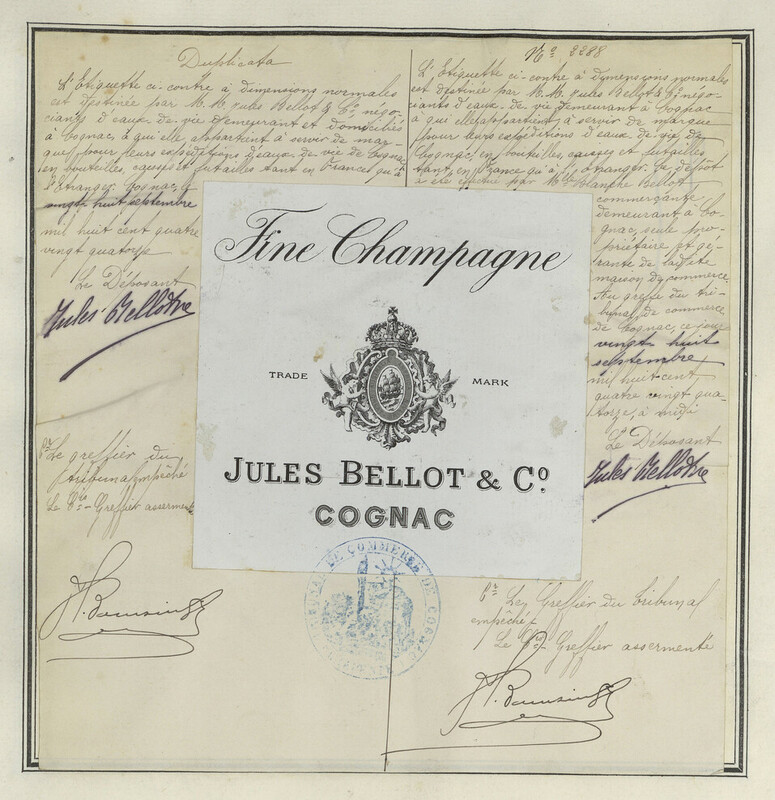 Duplicata
L'Etiquette ci-contre a dimensions normales
est destinée par M.M. Jules Bellot & Co, négo-
ciants d'eaux-de-vie demeurant et domiciliés
à Cognac, à qui elle appartient à servir de mar-
que pour leurs expéditions d'eaux-de-vie de Cognac
en bouteilles, caisses et futailles tant en France qu'à
l'Etranger. Cognac, le
vingt huit septembre
mil huit cent quatre
vingt quatorze
Le Déposant
Jules Bellot & Co
Pr Le greffier du
tribunal empêché
Le Cis-Greffier assermenté
No 3388
L'Etiquette ci-contre à dimensions normales
est destinée par M.M. Jules Bellot & Co, négo-
ciants d'eaux-de-vie demeurant à Cognac
à qui elle appartient, à servir de marque
pour leurs expéditions d'eaux-de-vie de
Cognac, en bouteilles, caisses et futailles
tant en France qu'à l'étranger. Ce dépôt
a été effectué par Blanche Bellot
commerçante
demeurant à Co-
gnac, seule pro-
priétaire et gé-
rante de ladite
maison de commerce.
Au greffe du tri-
bunal de commerce
de Cognac, ce jour
vingt huit
septembre
mil huit cent
quatre vingt qua-
torze, à midi
Le Déposant
Jules Bellot & Co
Pr Le Greffier du Tribunal
empêché
Le Cis Greffier assermenté
Fine Champagne
TRADE MARK
JULES BELLOT & Co.
COGNAC
TRIBUNAL DE COMMERCE DE COGNAC